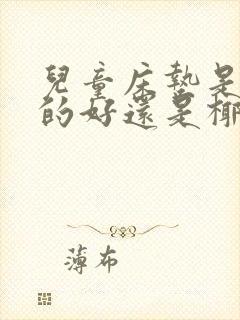 兒童床墊是
的好還是椰
薄布